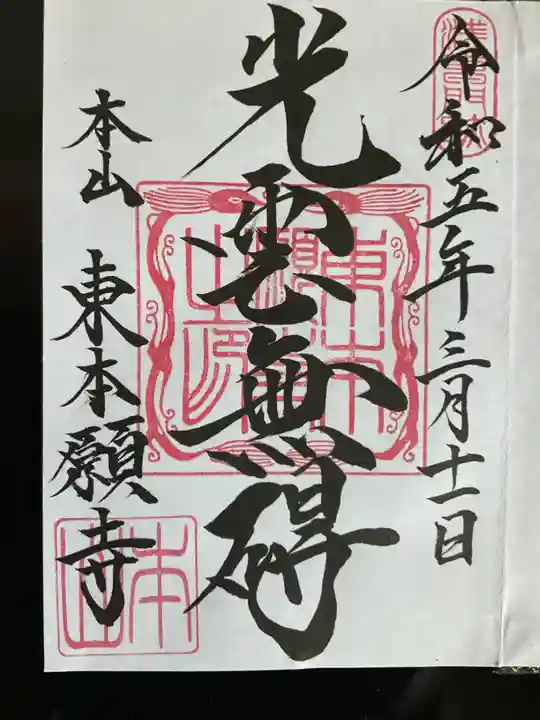 令和五年三月十一日
光雲無碍
本山 東本願寺